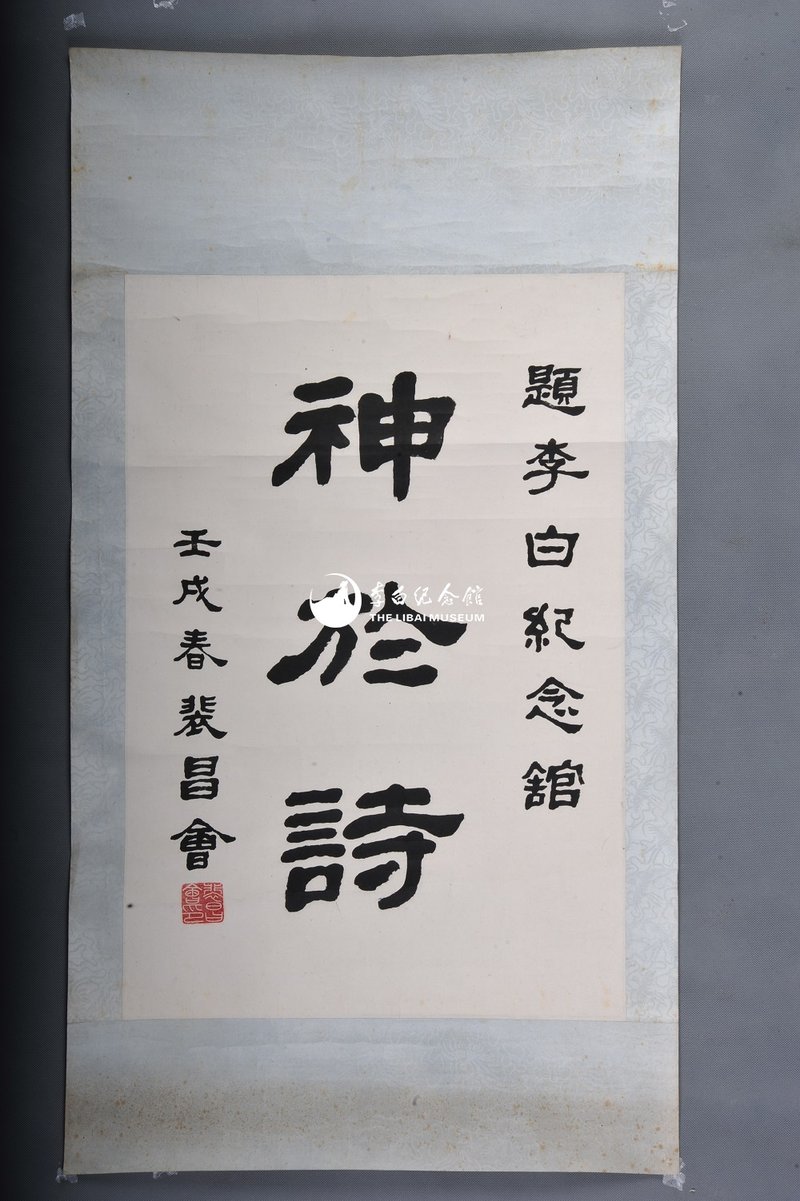 題李白紀念館
神於詩
壬戌春裴昌會
裴昌會印
李白纪念馆
THE LIBAI MUSEUM